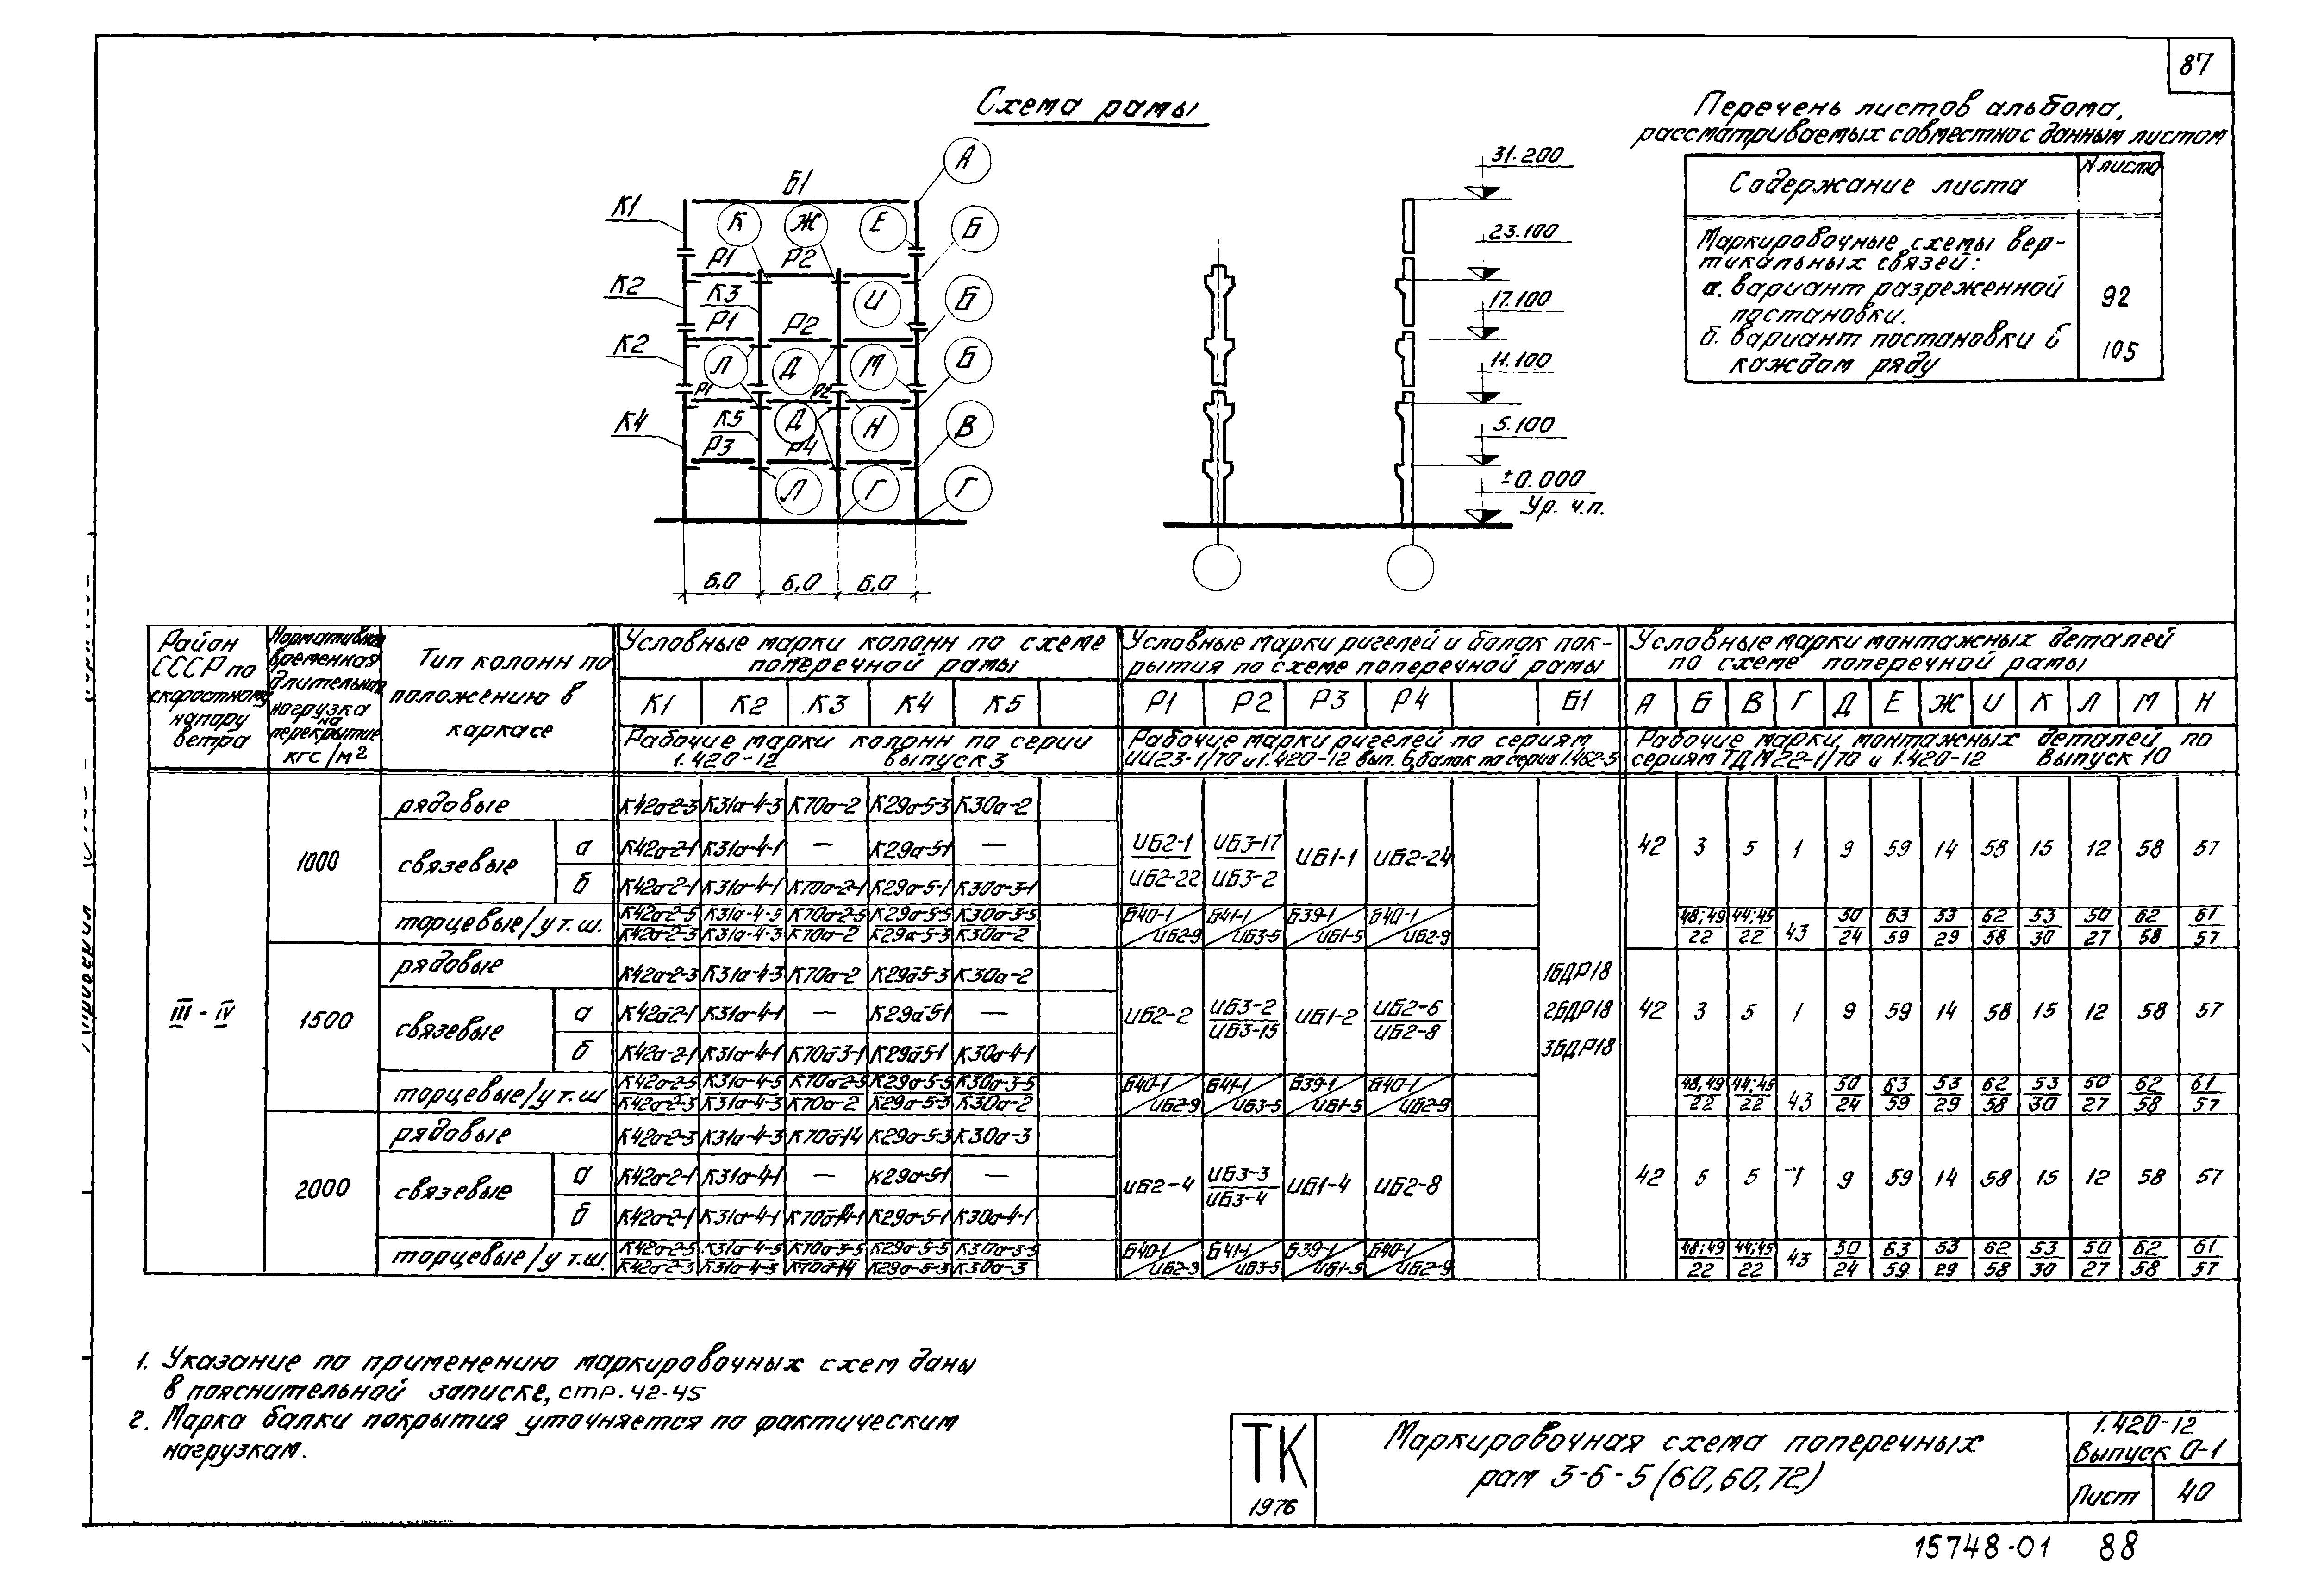 87
Схема рамы
Перечень листов альбома,
рассматриваемых совместно с данным листом
Содержание листа
N листа
Маркировочные схемы вер-
тикальных связей:
а. вариант разреженной
постановки.
92
б. вариант постановки в
каждом ряду
105
Б1
А
К1
К
Ж
Е
Б
Р1
Р2
К2
К3
И
Б
Р1
Р2
К2
Л
Д
М
Б
Р1
Р2
К4
К5
Д
Н
В
Р3
Р4
Л
Г
Г
6,0
6,0
6,0
31.200
23.100
17.100
11.100
5.100
±0.000
Ур. ч.п.
Район СССР по скоростному напору ветра
Нормативная временная длительная нагрузка на перекрытие кгс/м2
Тип колонн по положению в каркасе
Условные марки колонн по схеме поперечной рамы
Условные марки ригелей и балок пок-
рытия по схеме поперечной рамы
Условные марки монтажных деталей
по схеме поперечной рамы
К1 К2 К3 К4 К5
Р1 Р2 Р3 Р4 Б1
А Б В Г Д Е Ж И К Л М Н
Рабочие марки колонн по серии
1.420-12 выпуск 3
Рабочие марки ригелей по сериям
ИИ23-1/70 и 1.420-12 вып. 6, балок по серии 1.462-3
Рабочие марки монтажных деталей по
сериям ТДМ22-1/70 и 1.420-12 Выпуск 10
III - IV
1000
рядовые К42а-2-3 К31а-4-3 К70а-2 К29а-5-3 К30а-2
связевые
а К42а-2-1 К31а-4-1 — К29а-5-1 —
б К42а-2-1 К31а-4-1 К70а-2-1 К29а-5-1 К30а-3-1
ИБ2-1 ИБ3-17 ИБ1-1 ИБ2-24
ИБ2-22 ИБ3-2
42 3 5 1 9 59 14 58 15 12 58 57
торцевые/у т.ш. К42а-2-5 К31а-4-5 К70а-2-5 К29а-5-5 К30а-3-5
К42а-2-3 К31а-4-3 К70а-2 К29а-5-3 К30а-2
Б40-1/ИБ2-9 Б41-1/ИБ3-5 Б39-1/ИБ1-5 Б40-1/ИБ2-9
48;49 44;45 43 50 63 53 62 53 50 62 61
22 22 24 59 29 58 30 27 58 57
1500
рядовые К42а-2-3 К31а-4-3 К70а-2 К29а-5-3 К30а-2
связевые
а К42а-2-1 К31а-4-1 — К29а-5-1 —
б К42а-2-1 К31а-4-1 К70а-3-1 К29а-5-1 К30а-4-1
ИБ2-2 ИБ3-2 ИБ1-2 ИБ2-6
ИБ3-15 ИБ2-8
1БДР18
2БДР18
3БДР18
42 3 5 1 9 59 14 58 15 12 58 57
торцевые/у т.ш К42а-2-5 К31а-4-5 К70а-2-5 К29а-5-5 К30а-3-5
К42а-2-3 К31а-4-3 К70а-2 К29а-5-3 К30а-2
Б40-1/ИБ2-9 Б41-1/ИБ3-5 Б39-1/ИБ1-5 Б40-1/ИБ2-9
48,49 44;45 43 50 63 53 62 53 50 62 61
22 22 24 59 29 58 30 27 58 57
2000
рядовые К42а-2-3 К31а-4-3 К70а-14 К29а-5-3 К30а-3
связевые
а К42а-2-1 К31а-4-1 — К29а-5-1 —
б К42а-2-1 К31а-4-1 К70а-14-1 К29а-5-1 К30а-4-1
ИБ2-4 ИБ3-3 ИБ1-4 ИБ2-8
ИБ3-4
42 5 5 1 9 59 14 58 15 12 58 57
торцевые/у т.ш. К42а-2-5 К31а-4-5 К70а-3-5 К29а-5-5 К30а-3-5
К42а-2-3 К31а-4-3 К70а-14 К29а-5-3 К30а-3
Б40-1/ИБ2-9 Б41-1/ИБ3-5 Б39-1/ИБ1-5 Б40-1/ИБ2-9
48;49 44;45 43 50 63 53 62 53 50 62 61
22 22 24 59 29 58 30 27 58 57
1. Указание по применению маркировочных схем даны
в пояснительной записке, стр. 42-45
2. Марка балки покрытия уточняется по фактическим
нагрузкам.
ТК
1976
Маркировочная схема поперечных
рам 3-6-5 (60,60,72)
1.420-12
Выпуск 0-1
Лист 40
15748-01 88